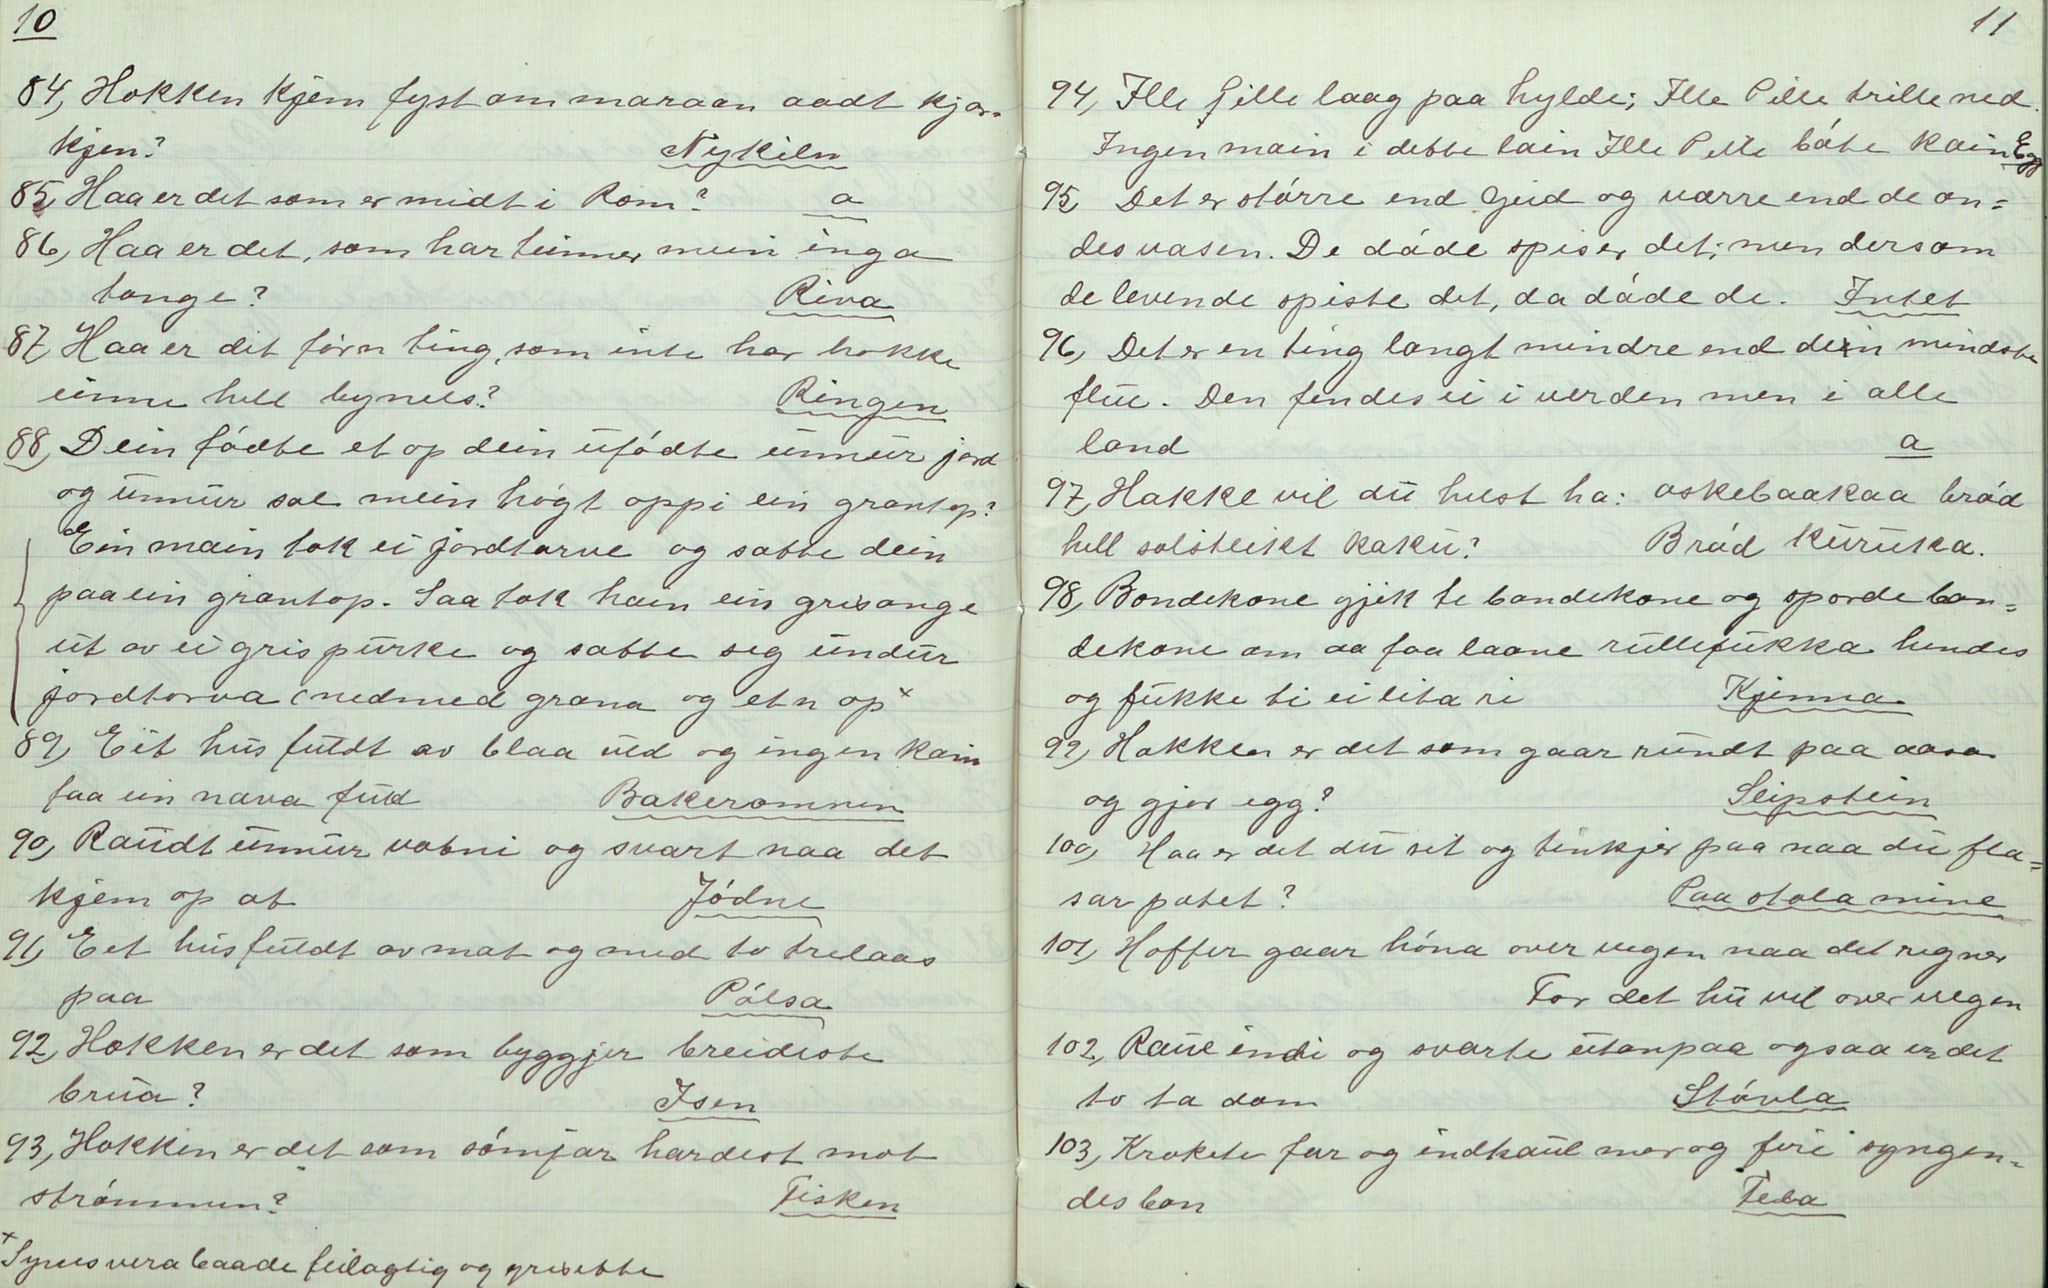 10
84, Hokken kjem fyst om maraan aadt kjør-
kjen? Nykiln
85, Haa er det som er midt i Rom? o
86, Haa er det, som har teinner mein inga
tonge? Riva
87, Haa er dit førn ting, som inte har hokke
einne hell bynels? Ringen
88, Dein fódte et op dein ufódte unnur jord
og unnur sol mein høgt oppi ein grantop?
Ein main tok ei jordtorve og satte dein
paa ein grantop. Saa tok hain ein grisonge
ut av ei grispurke og satte seg undur
jordtorva (nedmed grana og et'n op ×
89, Eit hus fuldt av blaa uld og ingen kain
faa ein nava fuld Bakeromnen
90, Raudt unnur votni og svart naa det
kjem op at Jódne
91, Eet hus fuldt av mat og med to trelaas
paa Pólsa
92, Hokken er det som byggjer breideste
brua? Isen
93, Hokken er det som sómjar hardest mot
strómmen? Fisken
× Synes vera baade feilagtig og grisette
11
94, Ille Pille laag paa hylde; Ille Pille trille ned.
Ingen main i dette lain Ille Pille bóte kain Egg
95, Det er stórre end Gud og værre end de on-
des vasen. De dóde spiser det; men dersom
de levende spiste det, da dóde de. Intet
96, Det er en ting langt mindre end dein mindste
flue. Den findes ei i verden men i alle
land a
97, Hakke vil du helst ha: oskebaakaa bród
hell solsteikt kaku? Bród kuruka.
98, Bondekone gjik te bondekone og sporde bon-
dekone om aa faa laane rullefukka hendes
og fukke ti ei lita ri Kjinna
99, Hokken er det som gaar rundt paa aasa
og gjer egg? Slipstein
100, Haa er det du sit og tinkjer paa naa du fla-
sar potet? Paa stola mine
101, Hoffer gaar hóna over vegen naa det regner
For det hu vil over vegen
102, Raue indi og svarte utanpaa ogsaa er det
to ta dom Stóvla
103, Krokete far og indhaul mor og firi syngen-
des bon Fela